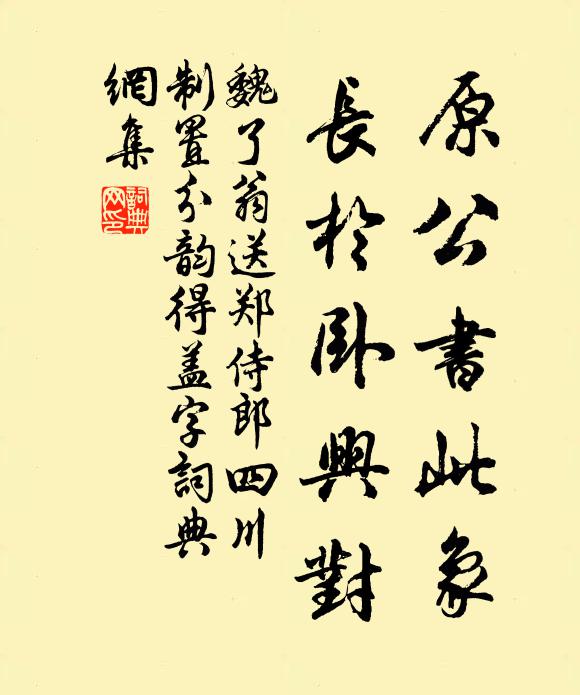 原公書此象
長於臥興對
魏了翁送郑侍郎四川
制置分韵得盖字詞典
網集
詞典网印